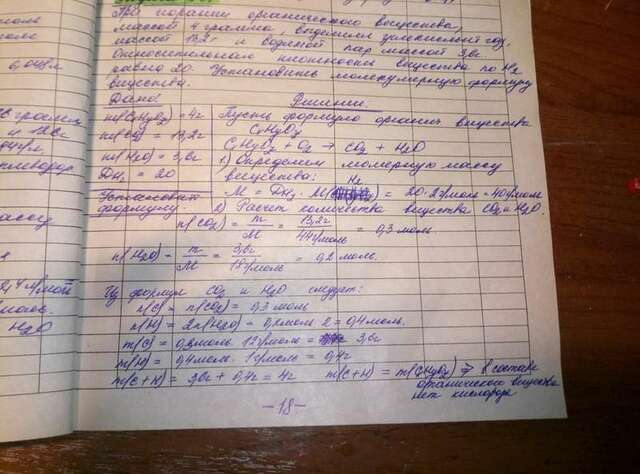 При сгорании органического вещества
массой 4 грамма, выделили углекислый газ,
массой 13,2 г и водяной пар массой 3,6 г.
Относительная плотность вещества по H2
равна 20. Установить молекулярную формулу
вещества.
Дано:
m(CxHyOz) = 4г
m(CO2) = 13,2г
m(H2O) = 3,6г
DH2 = 20
Установить
формулу
Решение.
Пусть формула органич вещества
CxHyOz
CxHyOz + O2 → CO2 + H2O
1) Определим молярную массу
вещества:
M = DH2 · M(H2) = 20·2г/моль = 40г/моль
2) Расчет количества вещества CO2 и H2O.
n(CO2) = m/M = 13,2г/44г/моль = 0,3 моль
n(H2O) = m/M = 3,6г/18г/моль = 0,2 моль.
Из формул CO2 и H2O следует:
n(C) = n(CO2) = 0,3 моль
n(H) = 2n(H2O) = 0,2моль · 2 = 0,4 моль.
m(C) = 0,3моль · 12г/моль = 3,6г
m(H) = 0,4моль · 1г/моль = 0,4г
m(C+H) = 3,6г + 0,4г = 4г m(C+H) = m(CxHyOz) ⇒ в составе
органического вещества
нет кислорода
-18-
0,448л
и 18г
H2O